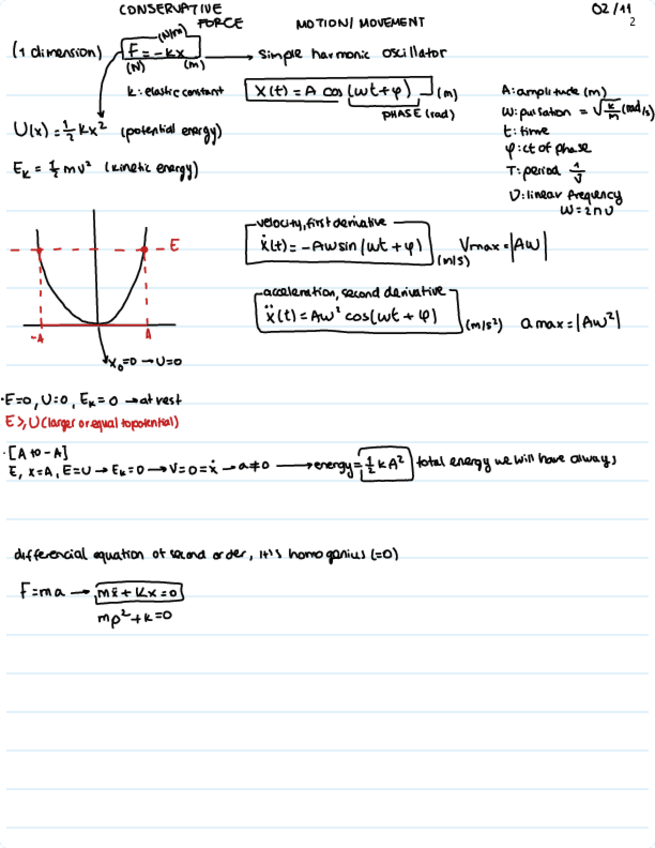 CONSERVATIVE FORCE
MOTION/MOVEMENT
02/11
2
(1 dimension) F = -kx → simple harmonic oscillator
(N/m)
(N) (m)
k: elastic constant
x(t) = A cos(ωt+φ) (m)
PHASE (rad)
A: amplitude (m)
ω: pulsation = √k/m (rad/s)
t: time
φ: ct of phase
T: period 1/ν
ν: linear frequency
ω = 2πν
U(x) = 1/2 kx² (potential energy)
Ek = 1/2 mv² (kinetic energy)
velocity, first derivative
ẋ(t) = -Aω sin(ωt + φ) (m/s) Vmax = |Aω|
acceleration, second derivative
ẍ(t) = Aω² cos(ωt + φ) (m/s²) a max = |Aω²|
E
-A
A
x₀=0 → U=0
·E=0, U=0, Ek=0 → at rest
E ≥ U (larger or equal to potential)
·[A to -A]
E, x=A, E=U → Ek=0 → V=0=ẋ → a≠0 → energy = 1/2 kA² total energy we will have always
differencial equation of second order, it's homogenius (=0)
F=ma → mẍ + kx = 0
mρ² + k = 0